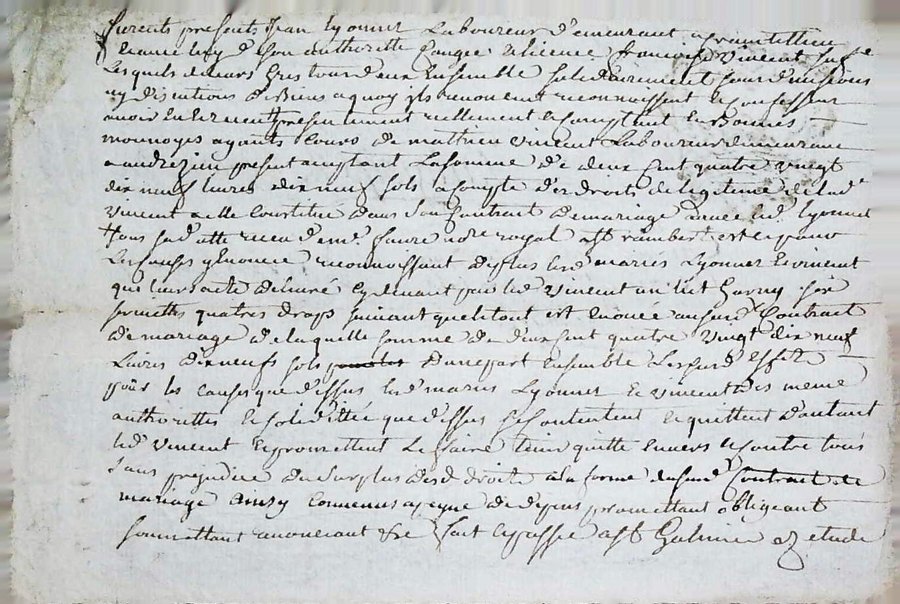 furents presents Jean Lyonnet Laboureur demeurant a
et de son authorité Congée & licence françoise Vincent sa
Lesquels de leurs gres tous deux Ensemble solidairement sans division
ny discution de Biens a quoy ils renoncent reconnoissent & confessent
avoir Eu & reçeu presentement reellement & comptant En Bonnes
monnoyes ayants Cours de mathieu Vincent Laboureur demeurant
a andrezieu present acceptant La somme de deux Cent quatre vingt
dix neuf livres dix neuf sols a compte des droits de legitime de lad
Vincent a elle Constitué dans son Contrat de mariage avec led Lyonnet
sous sa datte receu de me faure nore royal a St rambert
Les causes y enoncée reconnoissant de plus lesd mariés Lyonnet & vincent
que leur a été delivré cy devant par led Vincent un lit garny
serviettes quatres draps suivant que le tout est enoncé aud Contract
de mariage de laquelle somme de deux Cent quatre Vingt dix neuf
Livres dix neufs sols d'une part Ensemble Les susd Effets
pour les causes que dessus lesd mariés Lyonnet & Vincent des meme
authorittés & solidittée que dessus se Contentent & quittent d'autant
led Vincent & promettent Le faire tenir quitte Envers & contre tous
sans prejudice du surplus desd droits a la forme dususd Contract de
mariage Ainsy Convenus promettant obligeant
soumettant renonceant &c fait & passé a St Galmier etude